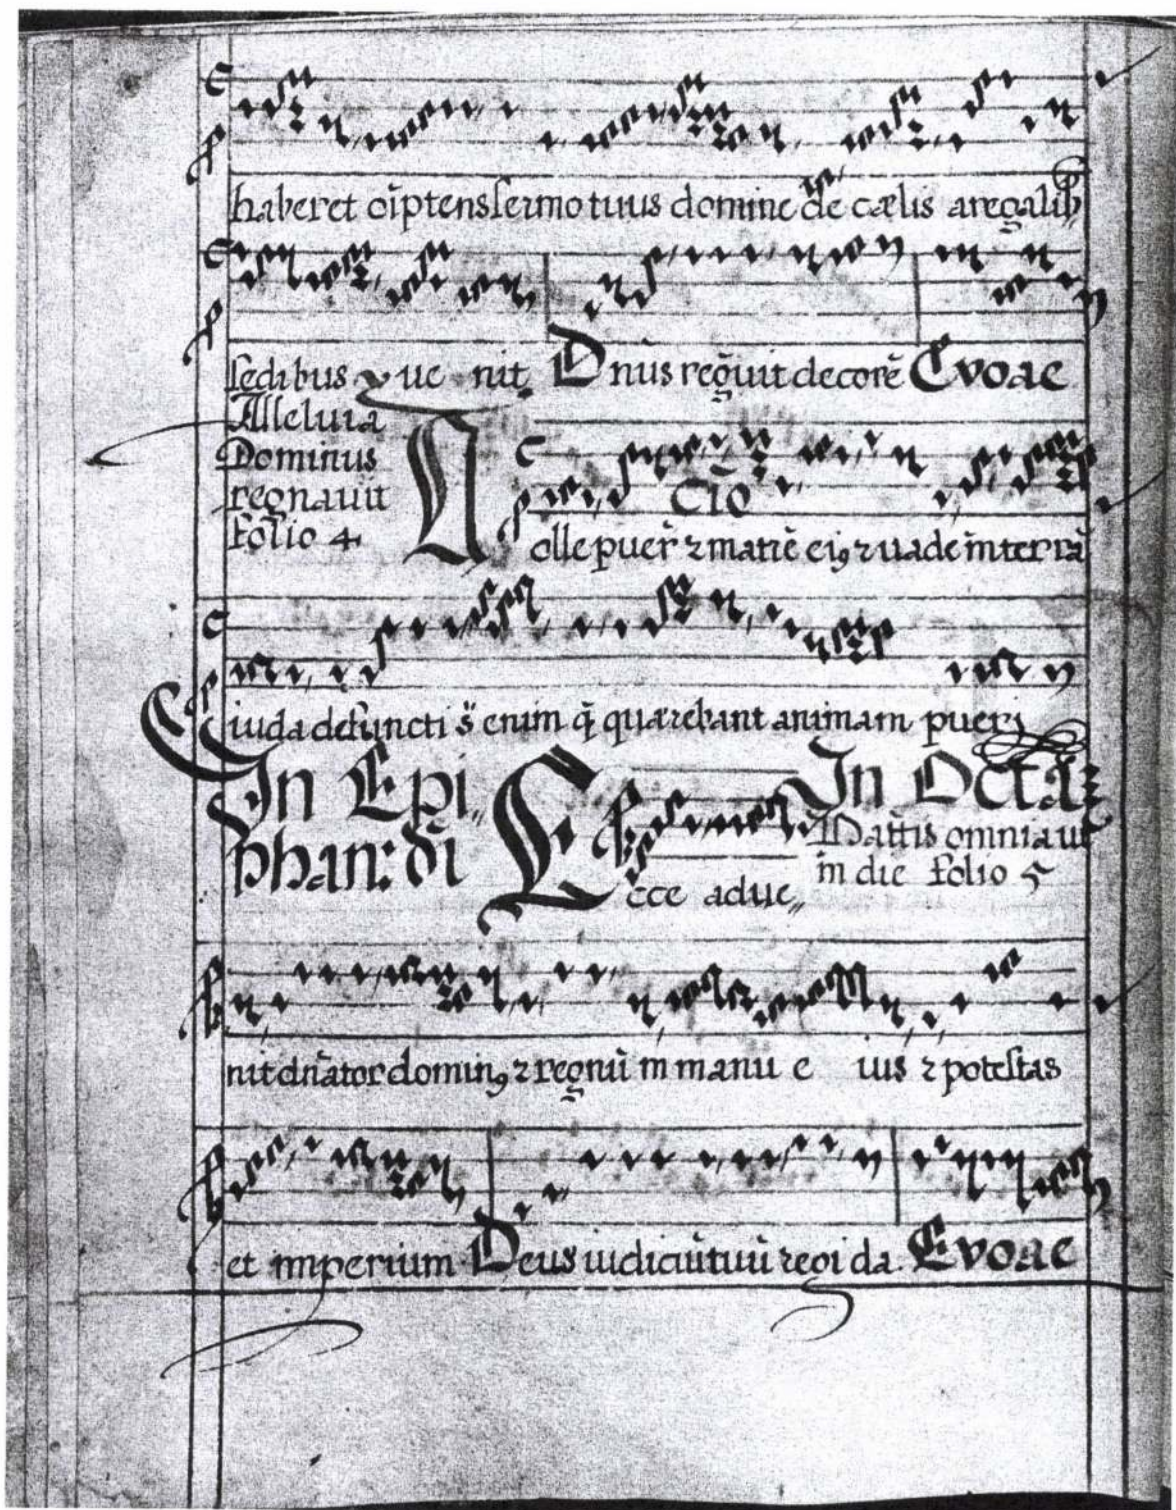 haberet oıp̄tens sermo tuus domine de cælis a regalib⁹
sedibus ue nit. Dn̄us reg̃uit decorē Evoae
Alleluia
Dominus
regnauit
folio 4
Cīo
Tolle puer̄ ⁊ matrē ei⁹ ⁊ uade in terrā
iuda defuncti s̄ enim q̄ quærebant animam pueri
In Epi
phan: dn̄i
Ecce adue
In Octā:
Natiuitatis omnia ut
in die folio 5
nit dn̄ator domin⁹ ⁊ regnū in manu e ius ⁊ potestas
et imperium Deus iudiciū tuū regi da. Evoae